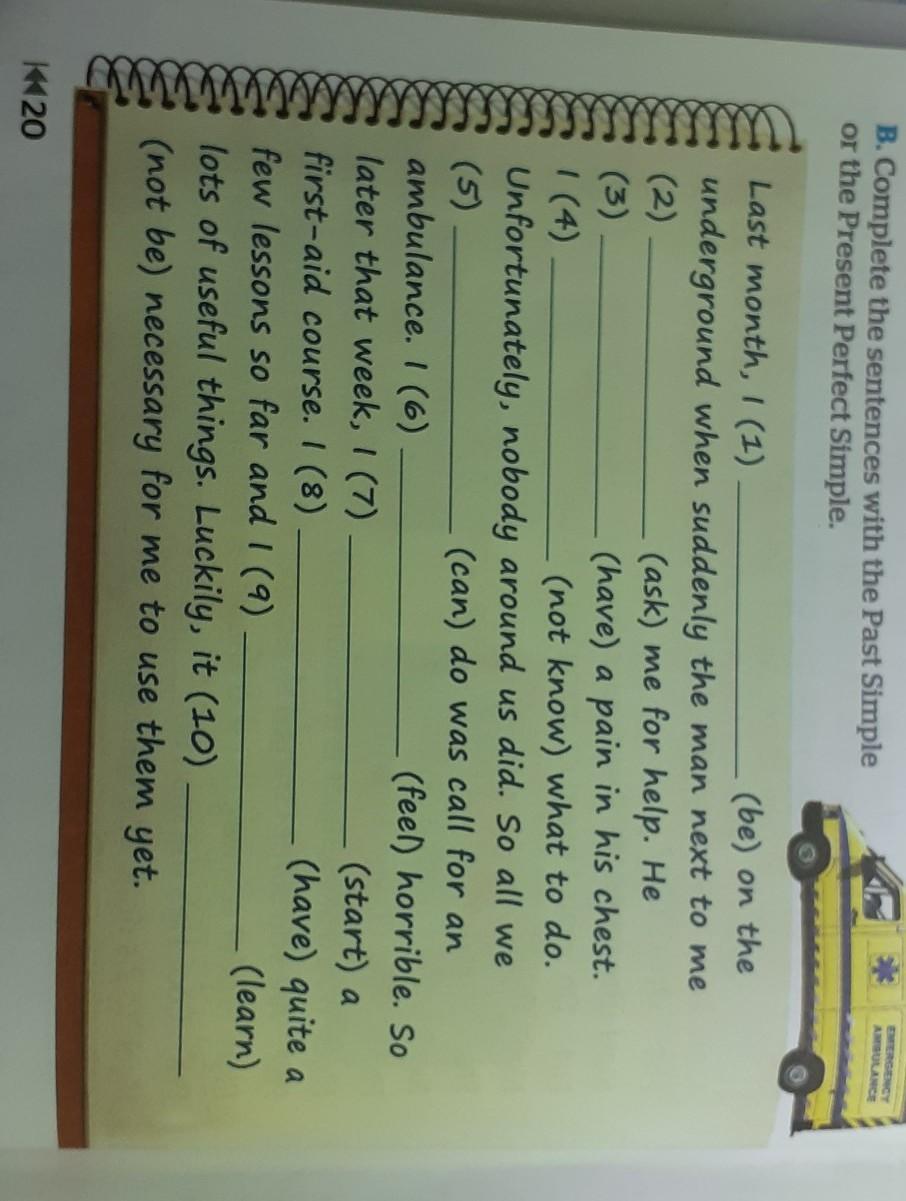 B. Complete the sentences with the Past Simple
or the Present Perfect Simple.
EMERGENCY
AMBULANCE
Last month, I (1) ____________ (be) on the
underground when suddenly the man next to me
(2) ____________ (ask) me for help. He
(3) ____________ (have) a pain in his chest.
I (4) ____________ (not know) what to do.
Unfortunately, nobody around us did. So all we
(5) ____________ (can) do was call for an
ambulance. I (6) ____________ (feel) horrible. So
later that week, I (7) ____________ (start) a
first-aid course. I (8) ____________ (have) quite a
few lessons so far and I (9) ____________ (learn)
lots of useful things. Luckily, it (10) ____________
(not be) necessary for me to use them yet.
20